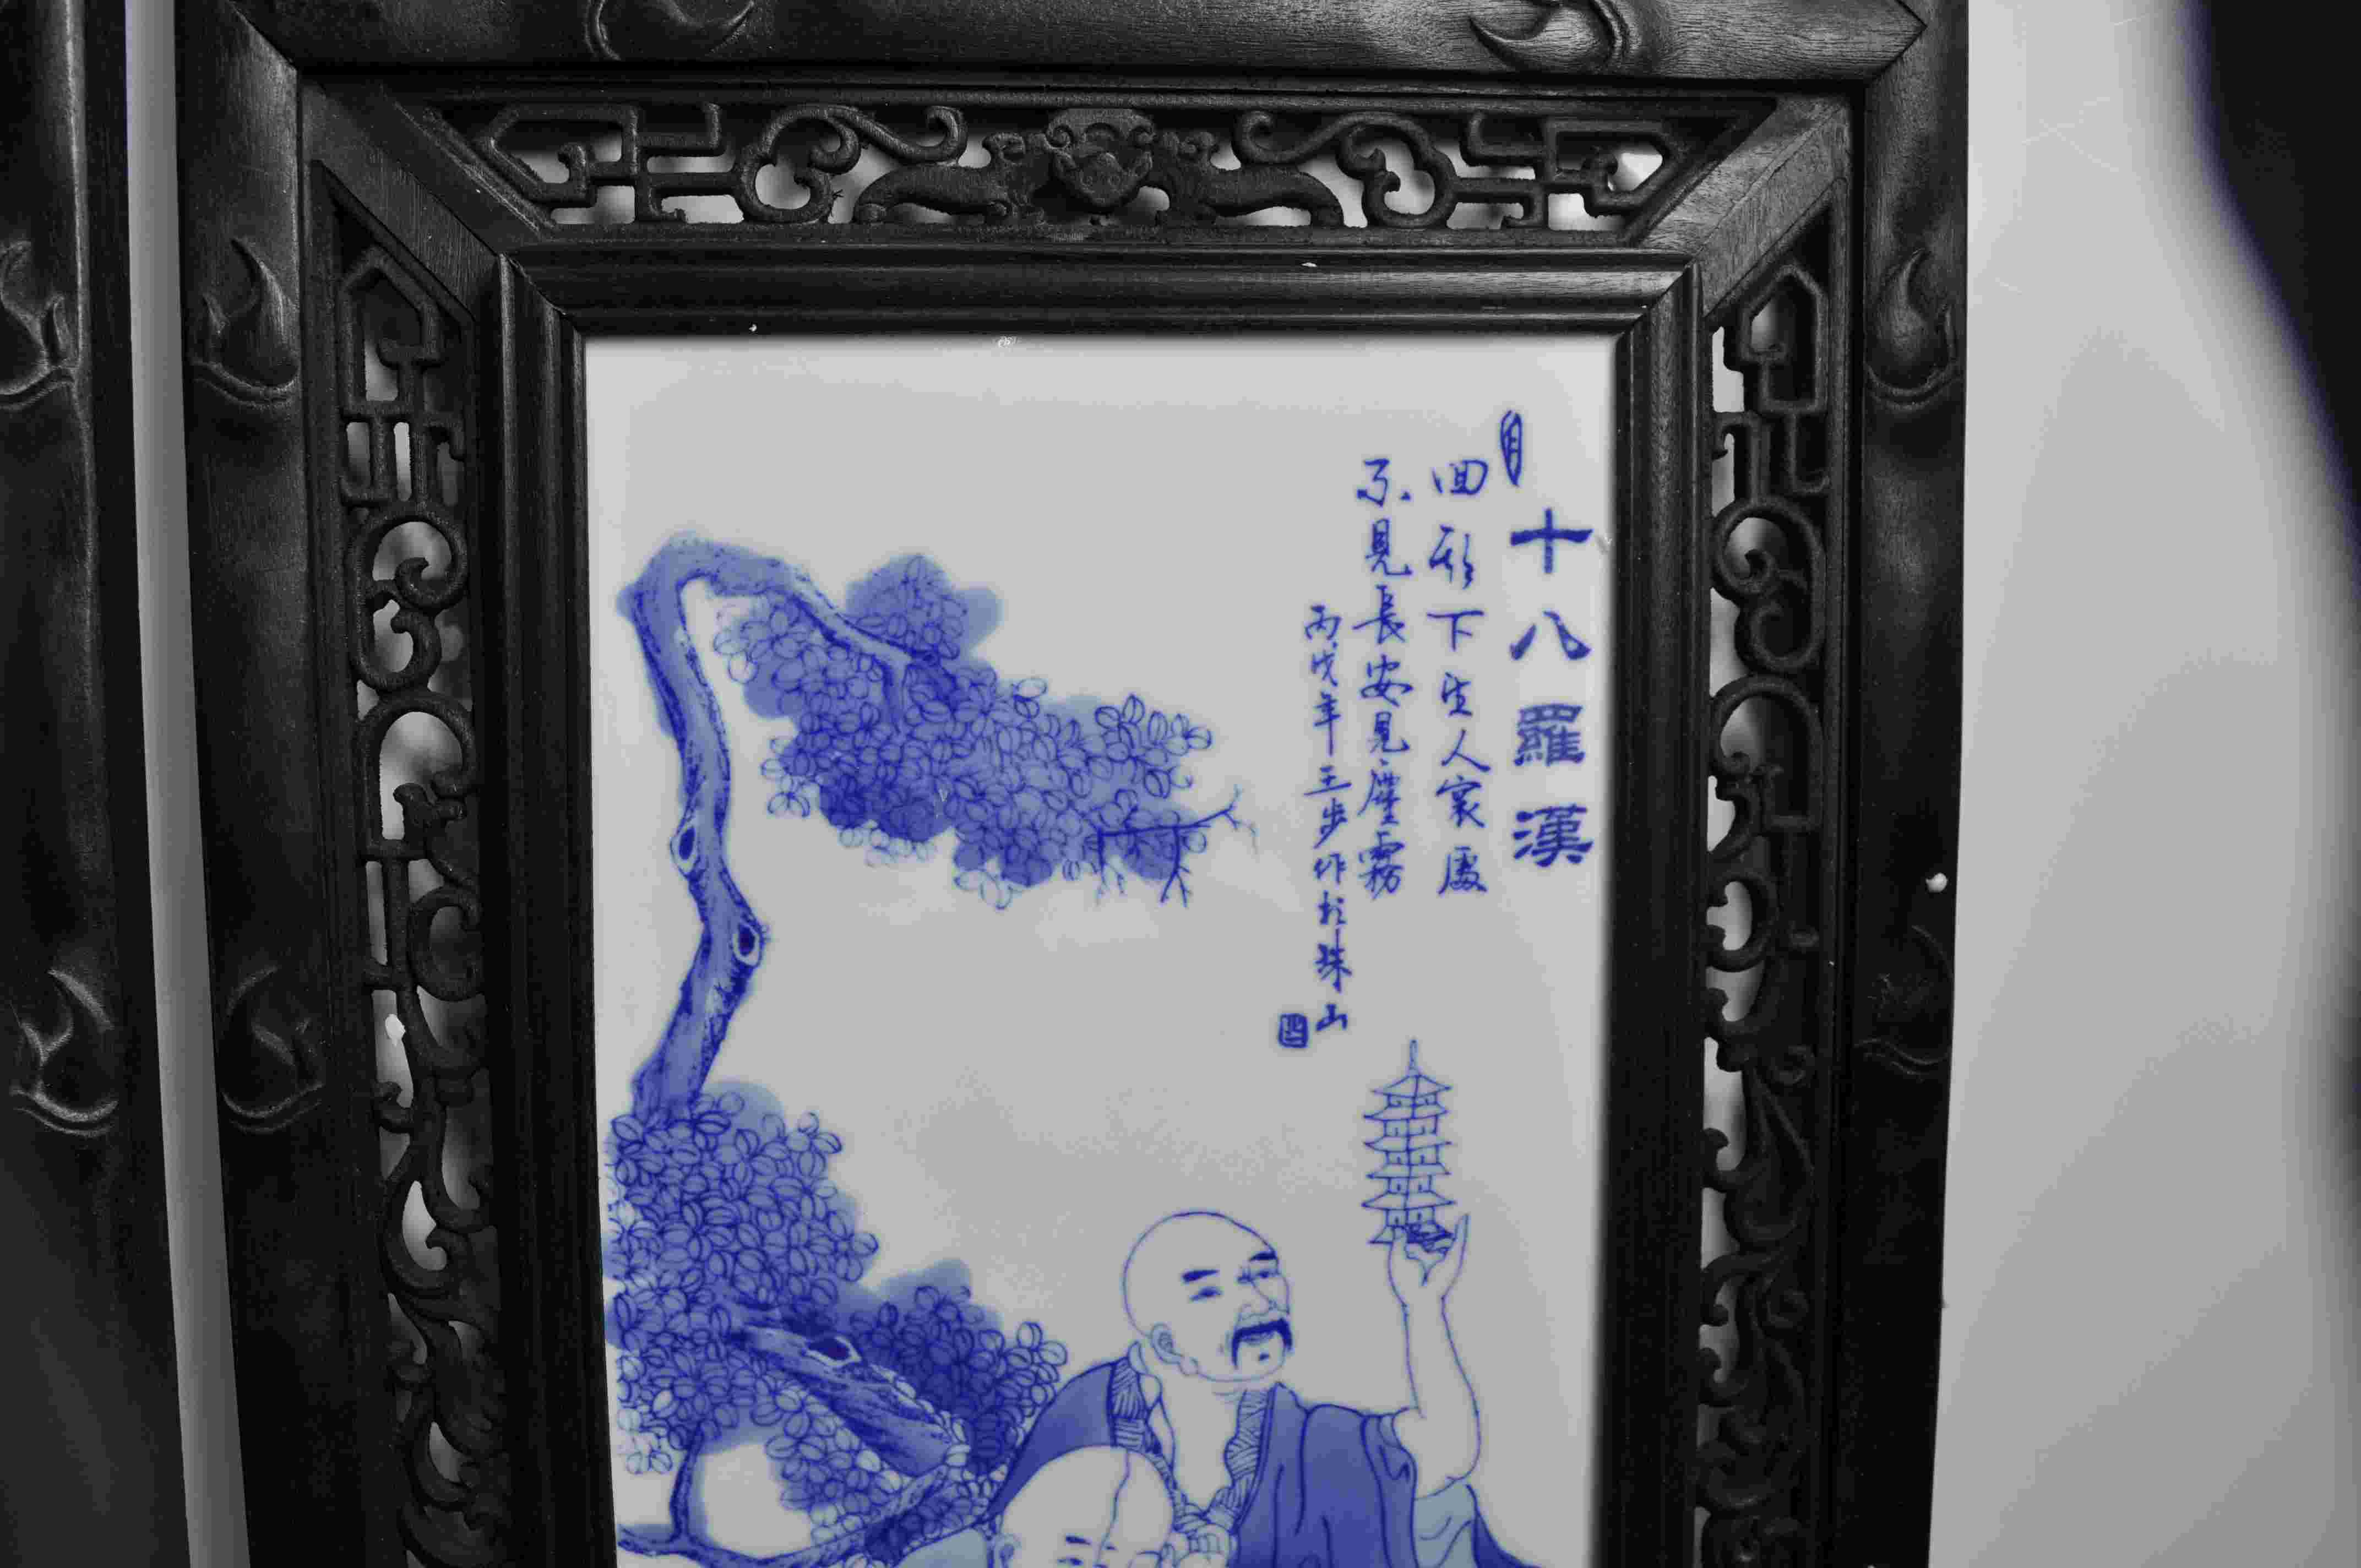 十八羅漢
回頭下望人寰處
不見長安見塵霧
丙戌年王步作於珠山